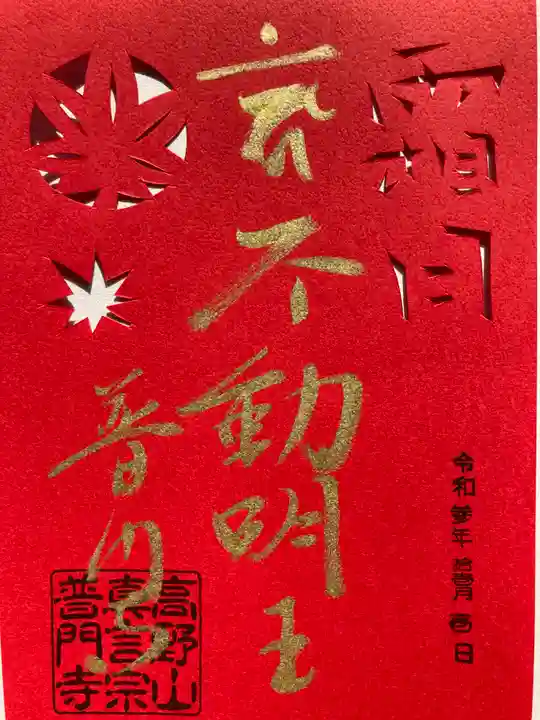 霜月
不動明王
普門寺
令和参年拾壹月 日
高野山
真言宗
普門寺